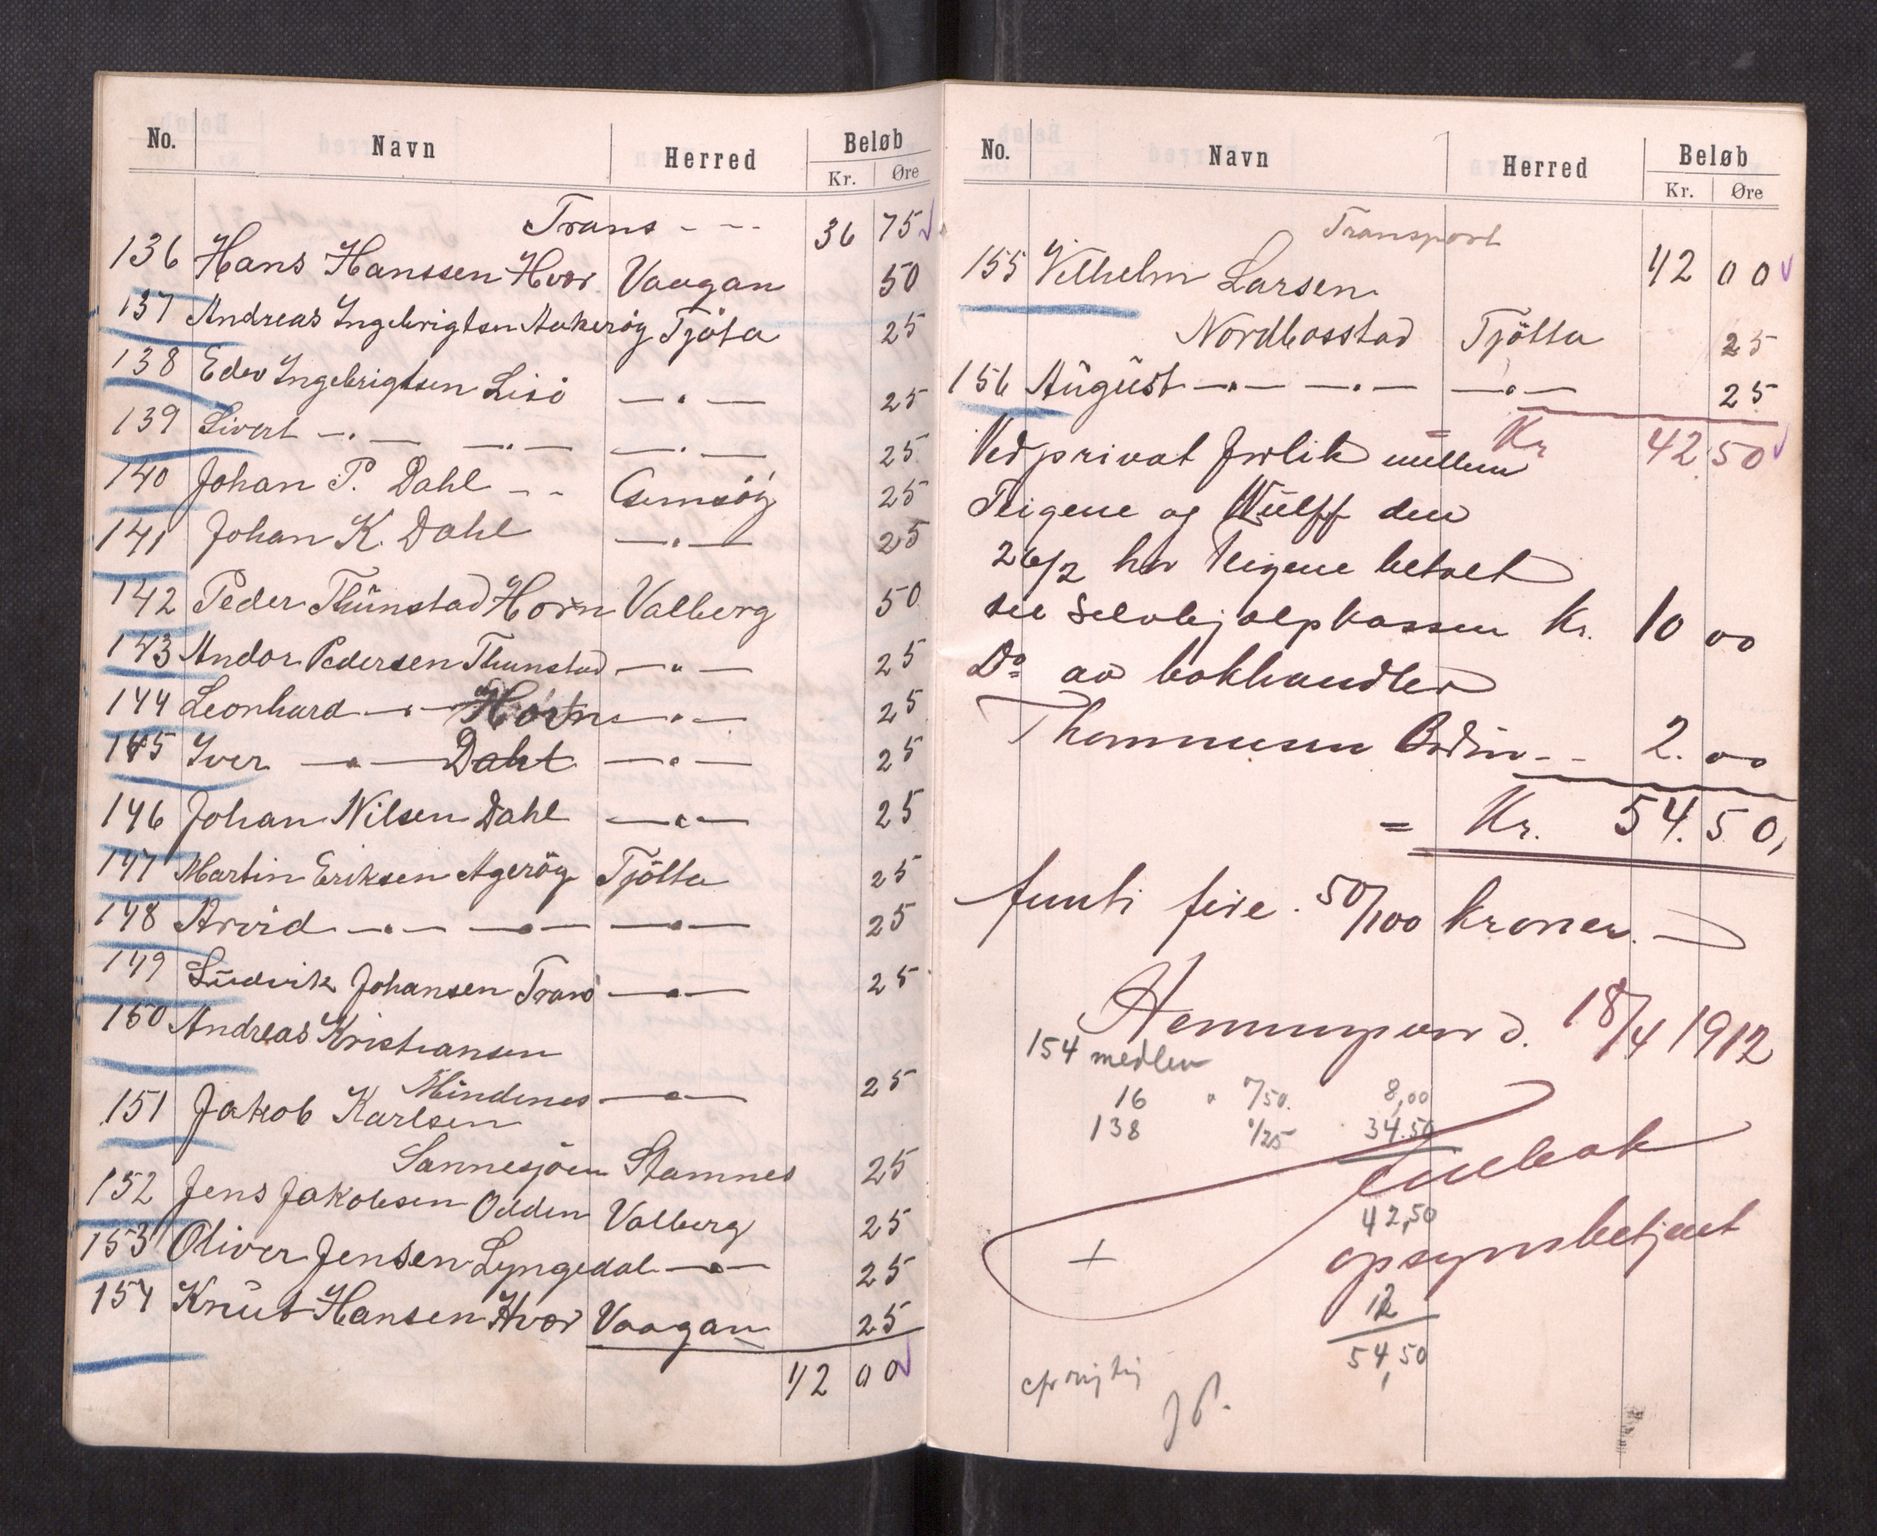 No. Navn Herred Beløb
Kr. Øre
Trans - - - 36 75
136 Hans Hanssen Hvær Vaagan 50
137 Andreas Ingebrigtsen Aakerøy Tjöta 25
138 Edev Ingebrigtsen Lisö — " — 25
139 Sivert — " — — " — — " — 25
140 Johan P. Dahl - - Gimsöy 25
141 Johan K. Dahl — " — 25
142 Peder Thünstad Horn Valberg 50
143 Andor Pedersen Thunstad — " — 25
144 Leonhard — " — Horn — " — 25
145 Iver — " — Dahl — " — 25
146 Johan Nilsen Dahl — " — 25
147 Martin Eriksen Ageröy Tjötta 25
148 Arvid — " — — " — — " — 25
149 Ludvik Johansen Tranö — " — 25
150 Andreas Kristiansen
Mindenes — " — 25
151 Jakob Karlsen
Sannesjöen Stamnes 25
152 Jens Jakobsen Odden Valberg 25
153 Oliver Jensen Lyngedal — " — 25
154 Knut Hansen Hvær Vaagan 25
42 00
No. Navn Herred Beløb
Kr. Øre
Transport
155 Vilhelm Larsen 42 00
Nordbosstad Tjötta 25
156 August — " — — " — — " — 25
= Kr 42 50
Ved privat forlik mellem
Teigene og Wulff den
26/2 har Teigene betalt
til Selvhjælpkassen Kr. 10 00
Do av bokhandler
Thommesen Bodin - - 2.00
= Kr. 54.50,
femti fire 50/100 kroner.
Henningsvær d. 18/4 1912
154 medlem
16 " /50. 8,00
138 " /25 34.50
42,50
opsynsbetjent
12
54,50